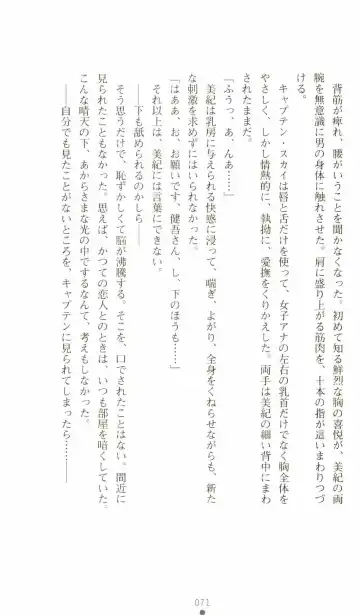 背筋が痺れ、腰がいうことを聞かなくなった。初めて知る鮮烈な胸の喜悦が、美紀の両
腕を無意識に男の身体にさせた。肩に盛り上がる筋肉に触れ、十本の指が這いまわりつづ
ける。
キャプテン・スカイは唇と舌だけを使って、女子アナの左右の乳首だけでなく胸全体を
やさしく、しかし情熱的に、執拗に、愛撫をくりかえした。両手は美紀の細い背中にまわ
されたままだ。
「ふうっ、あ、んあ……」
美紀は乳房に与えられる快感に浸って、喘ぎ、よがり、全身をくねらせながらも、新た
な刺激を求めずにはいられなかった。
「はああ、お、お願いです、健吾さん、し、下のほうも……」
それ以上は、美紀には言葉にできない。
――下も舐められるのかしら……
そう思うだけで、恥ずかしくて脳が沸騰する。そこを、口でされたことはない。間近に
見られたこともなかった。思えば、かつての恋人とのときは、いつも部屋を暗くしていた。
こんな晴天の下、あからさまな光の中でするなんて、考えもしなかった。
――自分でも見たことがないところを、キャプテンに見られてしまったら――――
071